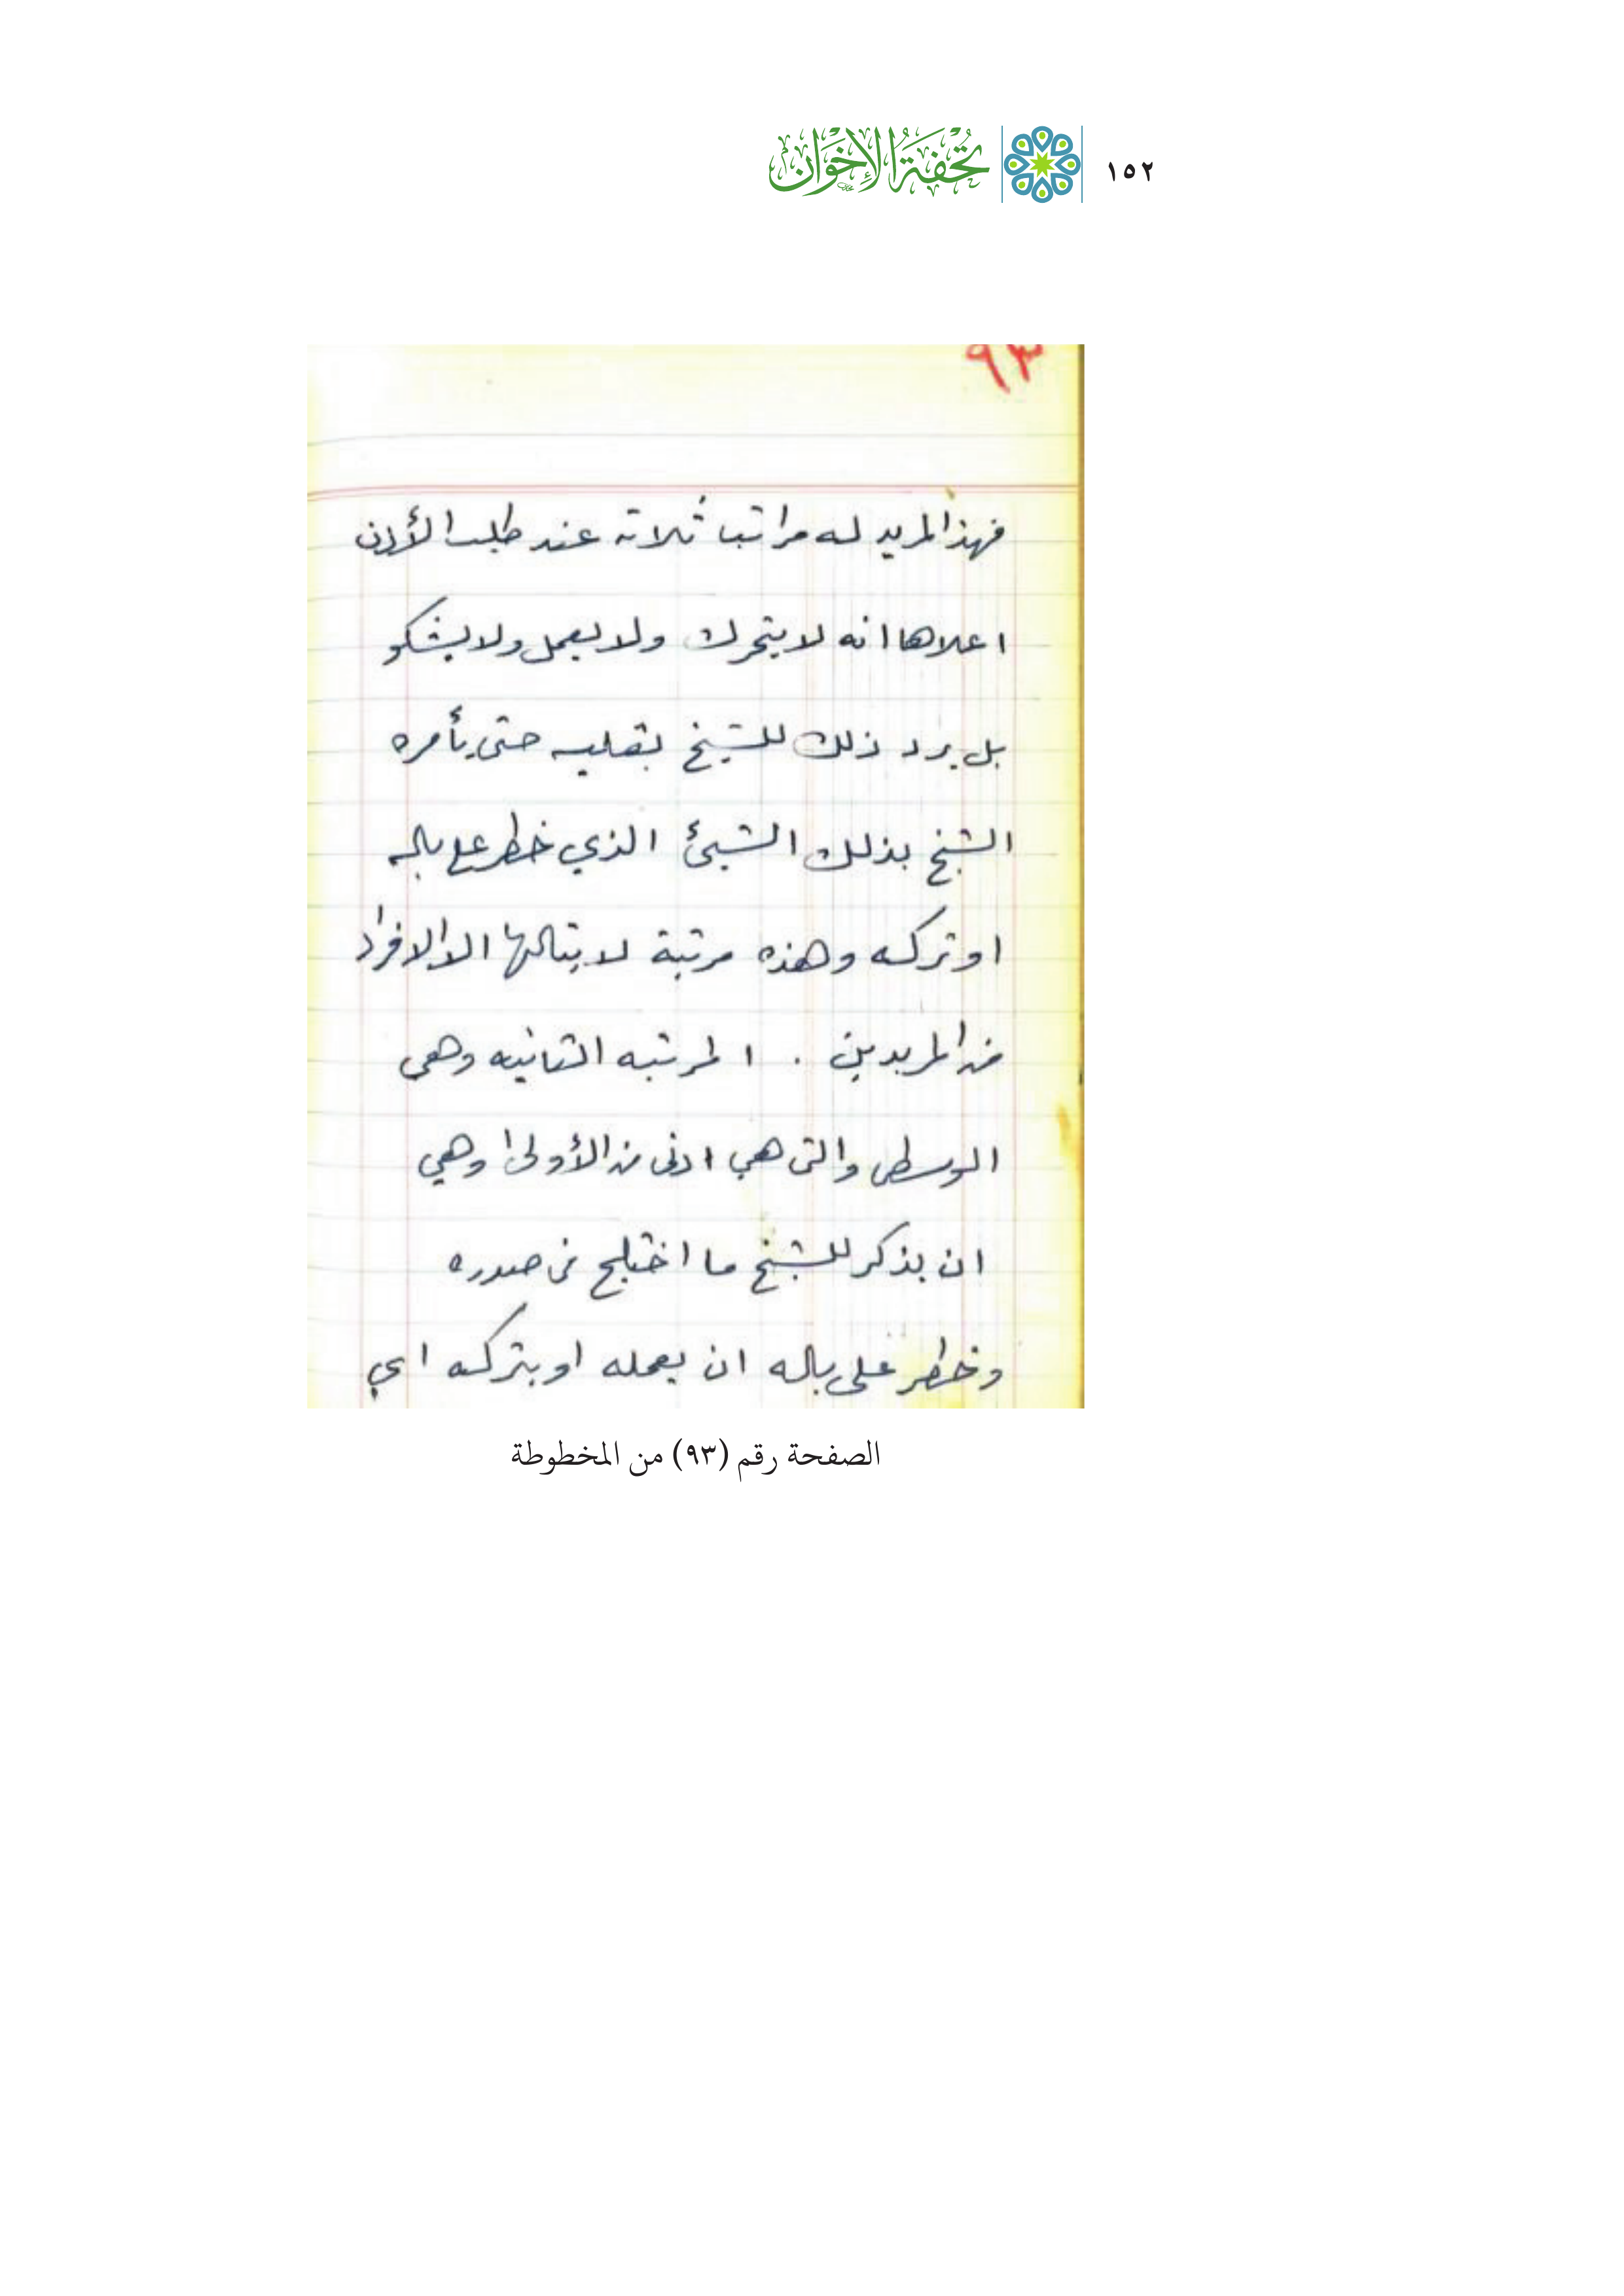 ١٥٢ تُحْفَةُ الإِخْوَان
٩٣
فهذا المريد له مراتب ثلاثة عند طلب الأذن
اعلاها انه لا يتحرك ولا يعمل ولا يشكو
بل يرد ذلك للشيخ بقلبه حتى يأمره
الشيخ بذلك الشيئ الذي خطر على باله
او تركه وهذه مرتبة لا ينالها الا الافراد
من المريدين . المرتبه الثانيه وهي
الوسطى والتي هي ادنى من الأولى وهي
ان يذكر للشيخ ما اختلج في صدره
وخطر على باله ان يعمله او يتركه اي
الصفحة رقم (٩٣) من المخطوطة